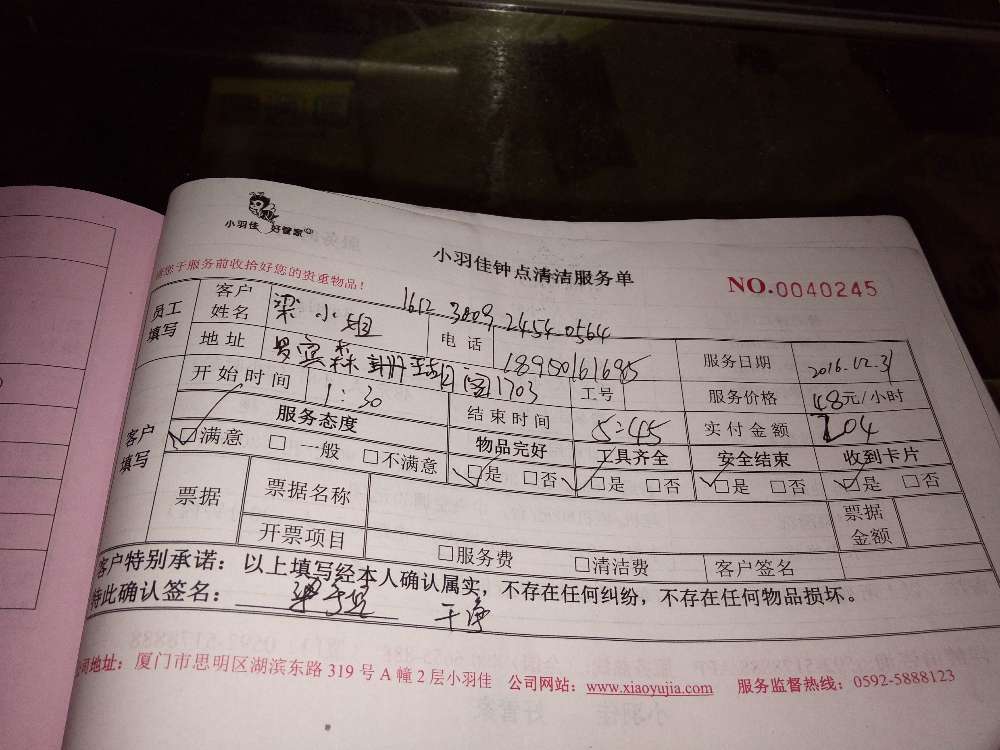 小羽佳 好管家
小羽佳钟点清洁服务单
NO.0040245
您于服务前收拾好您的贵重物品!
员工填写 客户姓名 梁小姐 1612 3009 2454 0564
电话 18950161695 服务日期 2016.12.31
地址 1703 工号 服务价格 48元/小时
客户填写 开始时间 1:30 结束时间 5:45 实付金额 204
服务态度 物品完好 工具齐全 安全结束 收到卡片
☑满意 □一般 □不满意 ☑是 □否 ☑是 □否 ☑是 □否 ☑是 □否
票据 票据名称 票据金额
开票项目 □服务费 □清洁费 客户签名
客户特别承诺:以上填写经本人确认属实,不存在任何纠纷,不存在任何物品损坏。
特此确认签名: 干净
公司地址:厦门市思明区湖滨东路319号A幢2层小羽佳 公司网站:www.xiaoyujia.com 服务监督热线:0592-5888123